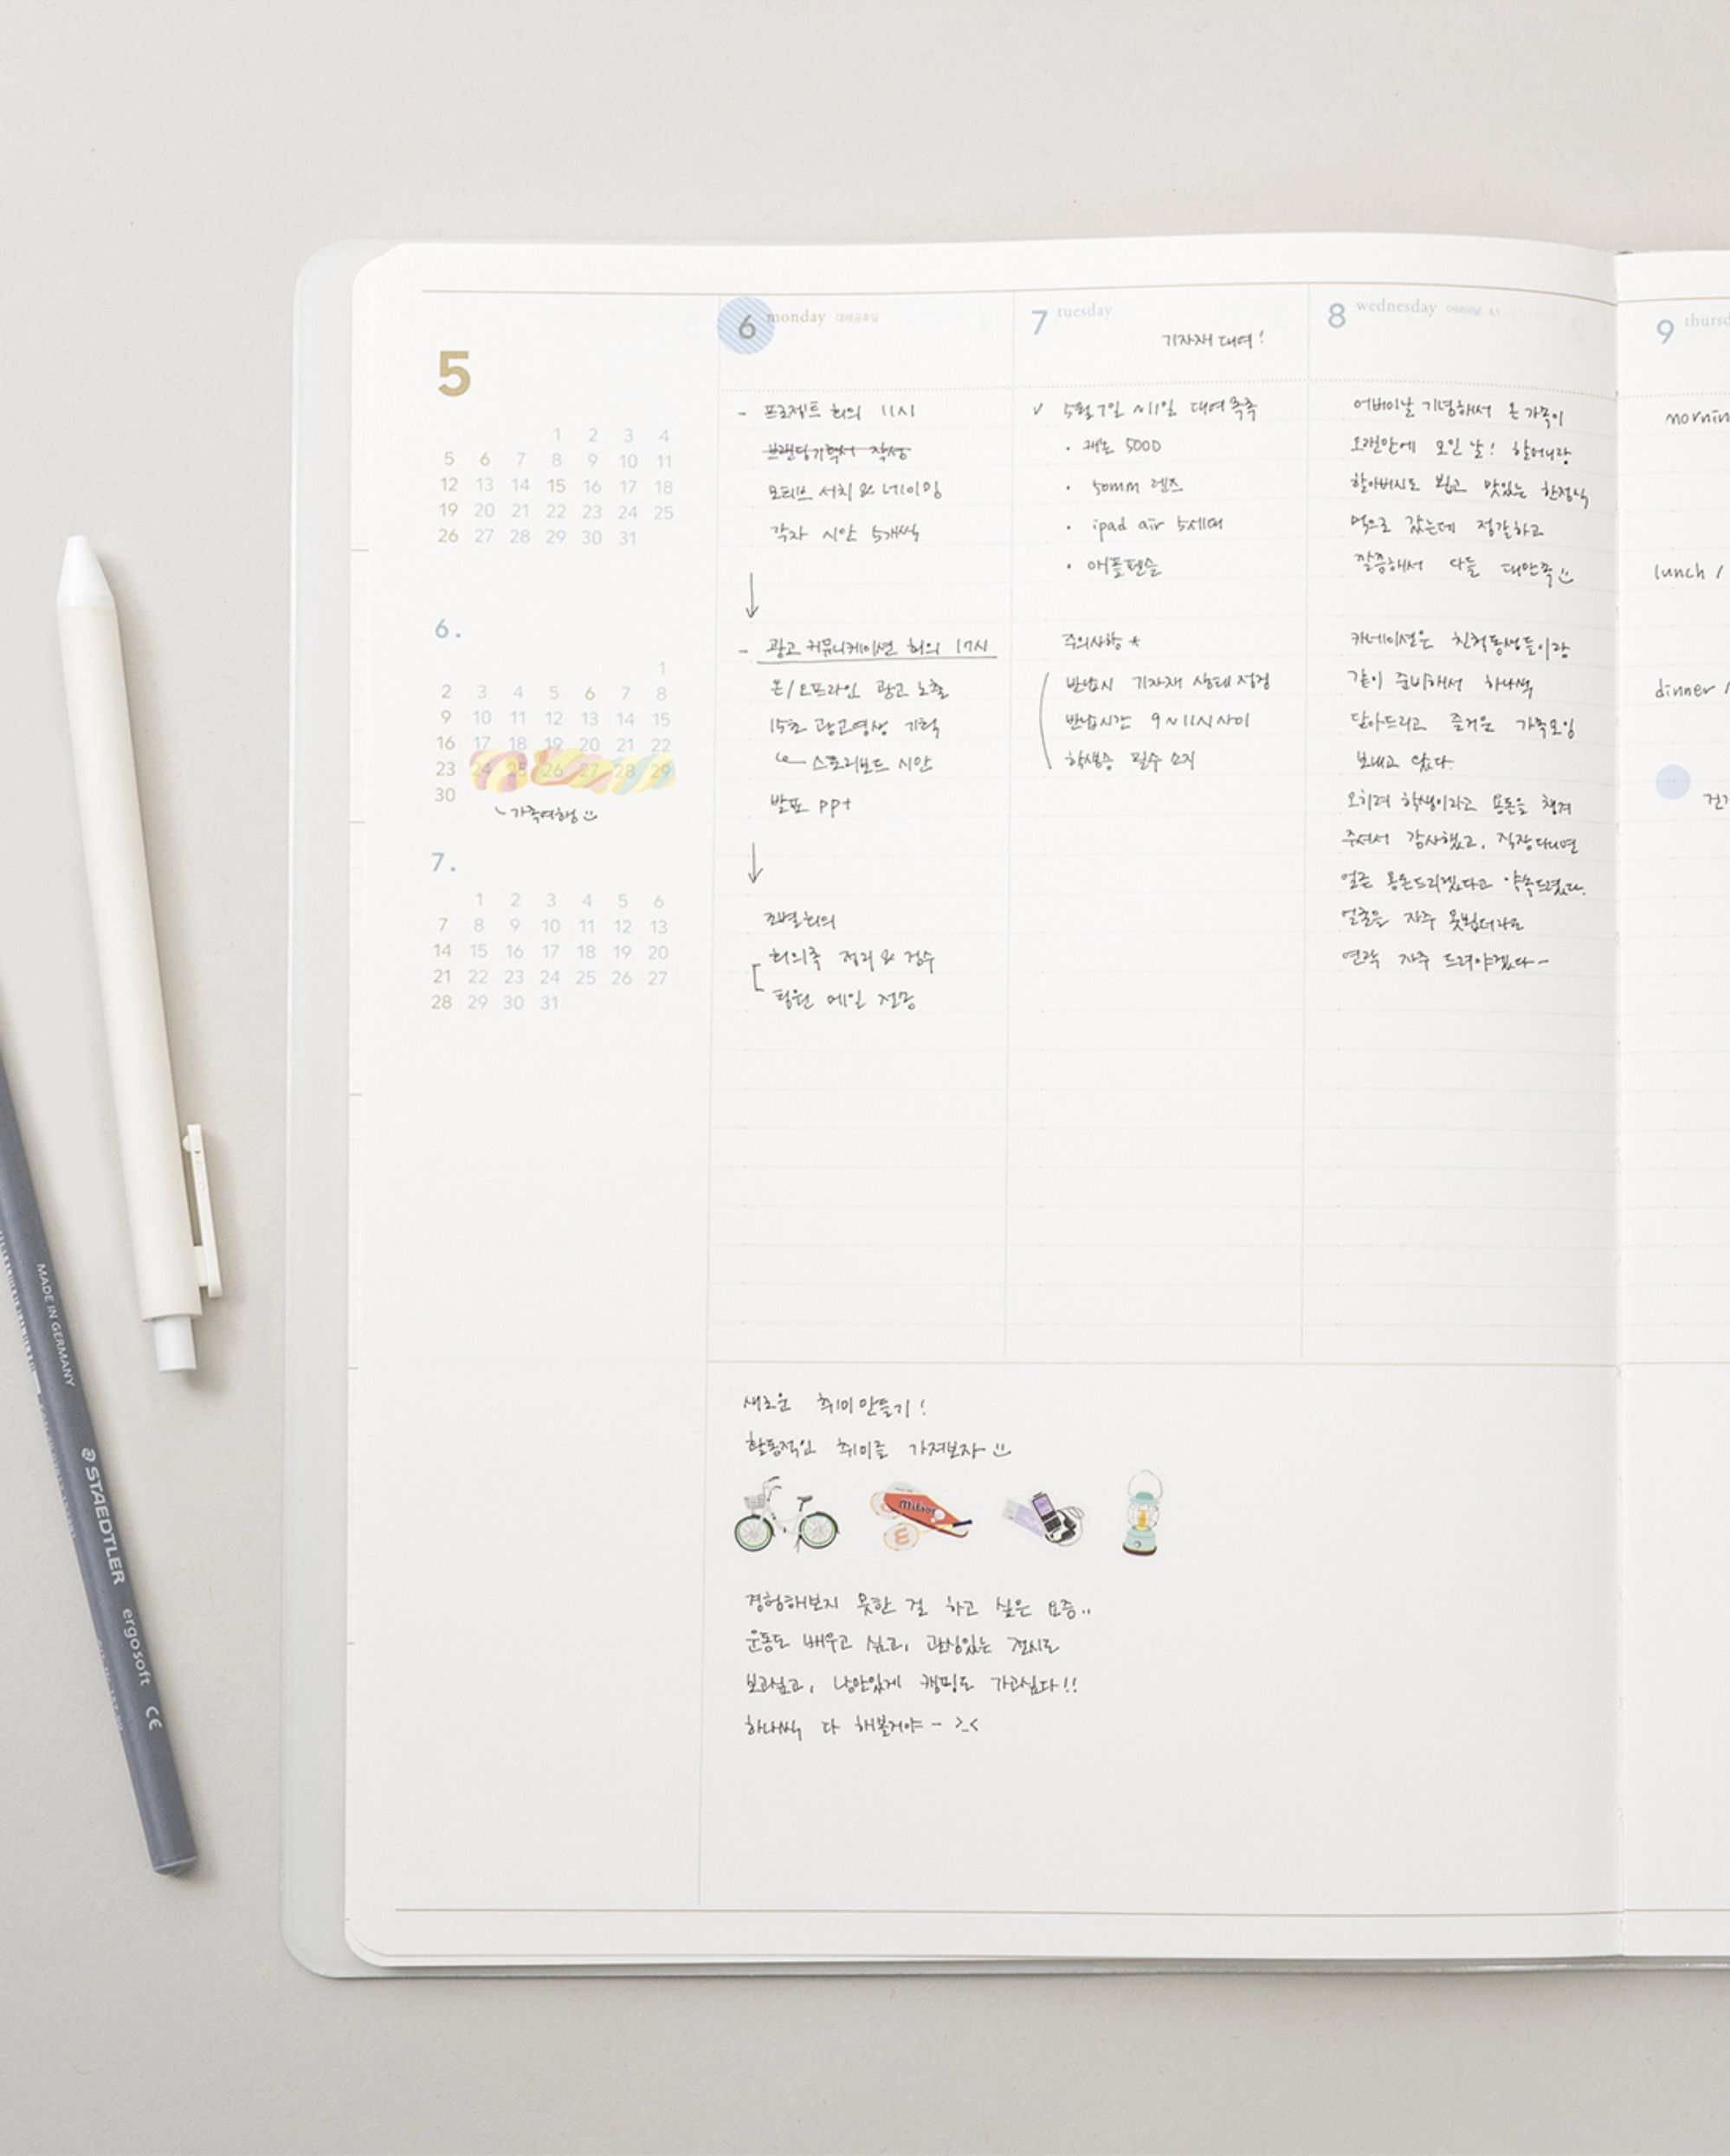 5
1 2 3 4
5 6 7 8 9 10 11
12 13 14 15 16 17 18
19 20 21 22 23 24 25
26 27 28 29 30 31
6.
1
2 3 4 5 6 7 8
9 10 11 12 13 14 15
16 17 18 19 20 21 22
23 24 25 26 27 28 29
30
가족여행
7.
1 2 3 4 5 6
7 8 9 10 11 12 13
14 15 16 17 18 19 20
21 22 23 24 25 26 27
28 29 30 31
6 monday 대체공휴일
- 프로젝트 회의 11시
브랜딩기획서 작성
모티브 서치 & 네이밍
각자 시안 5개씩
↓
- 광고 커뮤니케이션 회의 17시
온/오프라인 광고 노출
15초 광고영상 기획
스토리보드 시안
발표 ppt
↓
조별회의
회의록 정리 & 검수
팀원 메일 전송
7 tuesday
기자재 대여!
✓ 5월 7일 ~ 11일 대여목록
· 캐논 500D
· 50mm 렌즈
· ipad air 5세대
· 애플펜슬
주의사항 *
반납시 기자재 상태 점검
반납시간 9~11시 사이
학생증 필수 소지
8 wednesday 어버이날 4.1
어버이날 기념해서 온 가족이
오랜만에 모인 날! 할머니랑
할아버지도 뵙고 맛있는 한정식
먹으로 갔는데 정갈하고
깔끔해서 다들 대만족
카네이션은 친척동생들이랑
같이 준비해서 하나씩
달아드리고 즐거운 가족모임
보내고 왔다.
오히려 학생이라고 용돈을 챙겨
주셔서 감사했고, 직장다니면
얼른 용돈드리겠다고 약속드렸다.
얼굴을 자주 못뵙더라도
연락 자주 드려야겠다~
9 thursd
mornin
lunch /
dinner /
새로운 취미만들기!
활동적인 취미를 가져보자
경험해보지 못한 걸 하고 싶은 요즘..
운동도 배우고 싶고, 관심있는 전시도
보고싶고, 낭만있게 캠핑도 가고싶다!!
하나씩 다 해볼거야~ >_<
MADE IN GERMANY
STAEDTLER ergosoft CE